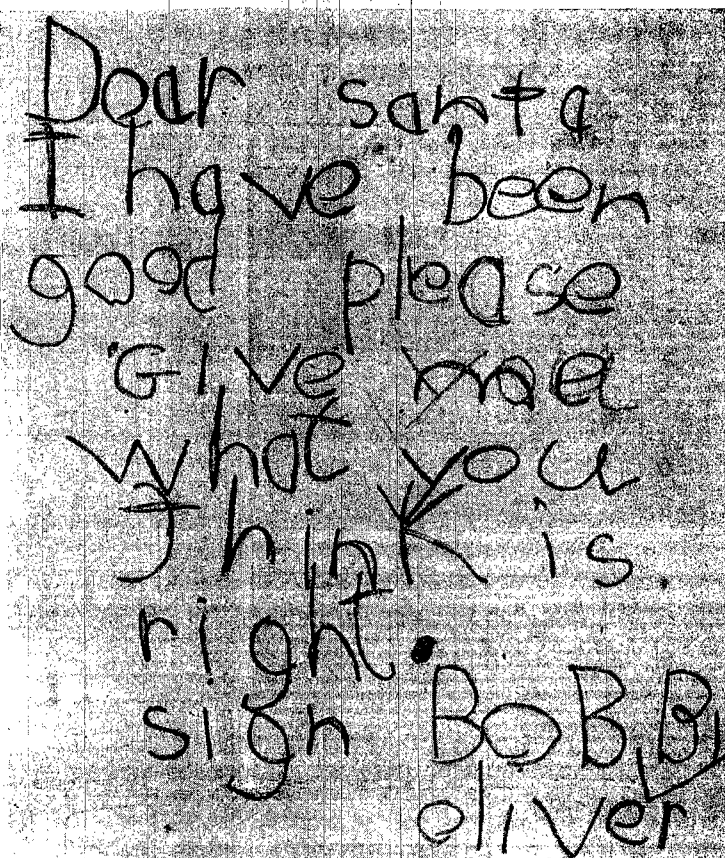 Dear santa
I have been
good please
Give me
what you
Think is.
right.
sign BoBBy
oliver